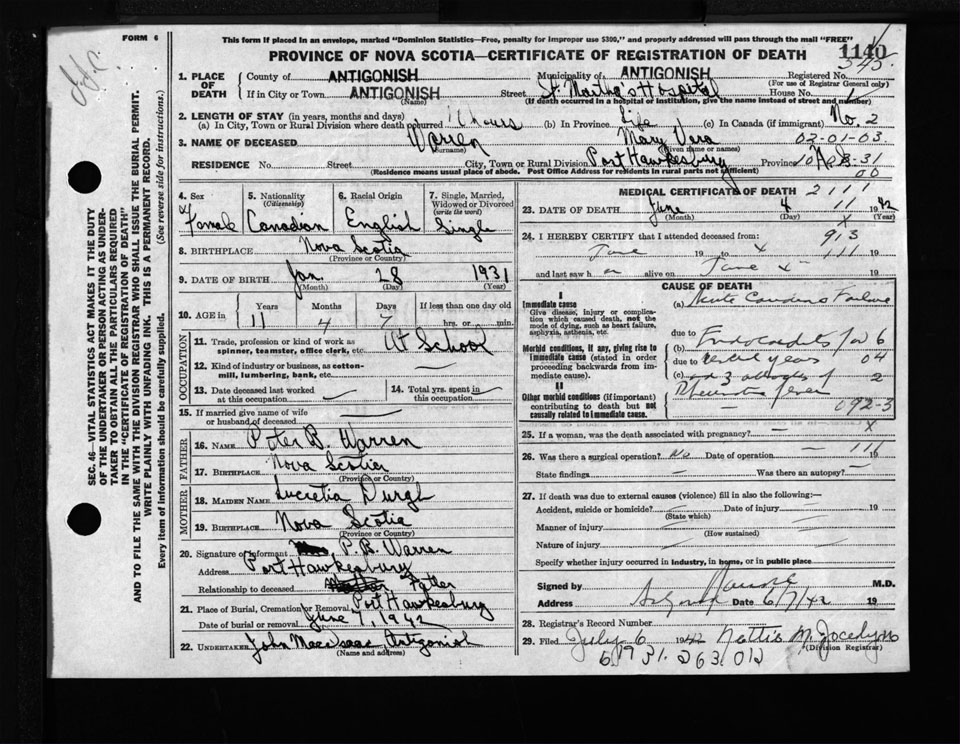 FORM 6
This form if placed in an envelope, marked "Dominion Statistics—Free, penalty for improper use $300," and properly addressed will pass through the mail "FREE"
PROVINCE OF NOVA SCOTIA—CERTIFICATE OF REGISTRATION OF DEATH
1140
1. PLACE OF DEATH
County of ANTIGONISH Municipality of ANTIGONISH Registered No. 545
(For use of Registrar General only)
If in City or Town ANTIGONISH Street St. Martha's Hospital House No.
(Name) (If death occurred in a hospital or institution, give the name instead of street and number)
2. LENGTH OF STAY (in years, months and days)
(a) In City, Town or Rural Division where death occurred 10 hours (b) In Province Life (c) In Canada (if immigrant) No. 2
3. NAME OF DECEASED Warren Mary Vera 02-01-03
(Surname) (Given name or names)
RESIDENCE No. Street City, Town or Rural Division Port Hawkesbury Province N.S.
(Residence means usual place of abode. Post Office Address for residents in rural parts not sufficient)
SEC. 46—VITAL STATISTICS ACT MAKES IT THE DUTY
OF THE UNDERTAKER OR PERSON ACTING AS UNDER-
TAKER TO OBTAIN ALL THE PARTICULARS REQUIRED
IN THE "CERTIFICATE OF REGISTRATION OF DEATH"
AND TO FILE THE SAME WITH THE DIVISION REGISTRAR WHO SHALL ISSUE THE BURIAL PERMIT.
WRITE PLAINLY WITH UNFADING INK. THIS IS A PERMANENT RECORD.
Every item of information should be carefully supplied. (See reverse side for instructions.)
4. Sex Female
5. Nationality (Citizenship) Canadian
6. Racial Origin English
7. Single, Married, Widowed or Divorced (write the word) Single
8. BIRTHPLACE Nova Scotia
(Province or Country)
9. DATE OF BIRTH Jan. 28 1931
(Month) (Day) (Year)
10. AGE in Years 11 Months 4 Days 7 If less than one day old hrs. or min.
OCCUPATION
11. Trade, profession or kind of work as spinner, teamster, office clerk, etc. At School
12. Kind of industry or business, as cotton-mill, lumbering, bank, etc.
13. Date deceased last worked at this occupation
14. Total yrs. spent in this occupation
15. If married give name of wife or husband of deceased
FATHER
16. NAME Peter B. Warren
17. BIRTHPLACE Nova Scotia
(Province or Country)
MOTHER
18. MAIDEN NAME Lucretia
19. BIRTHPLACE Nova Scotia
(Province or Country)
20. Signature of informant P. B. Warren
Address Port Hawkesbury
Relationship to deceased Father
21. Place of Burial, Cremation or Removal Port Hawkesbury
Date of burial or removal June 7, 1942
22. UNDERTAKER John MacIsaac, Antigonish
(Name and address)
MEDICAL CERTIFICATE OF DEATH 2111
23. DATE OF DEATH June 4 1942
(Month) (Day) (Year)
24. I HEREBY CERTIFY that I attended deceased from: 913
June 19 to 19
and last saw h er alive on June 19
CAUSE OF DEATH
I
Immediate cause
Give disease, injury or complication which caused death, not the mode of dying, such as heart failure, asphyxia, asthenia, etc.
(a) Acute Cardiac Failure
due to
Morbid conditions, if any, giving rise to immediate cause (stated in order proceeding backwards from immediate cause).
(b) Endocarditis for 6
due to several years 04
(c) and 3 attacks of 2
Rheumatic fever
II
Other morbid conditions (if important) contributing to death but not causally related to immediate cause.
092-3
25. If a woman, was the death associated with pregnancy? X
26. Was there a surgical operation? No Date of operation 19
State findings Was there an autopsy?
27. If death was due to external causes (violence) fill in also the following:—
Accident, suicide or homicide? Date of injury 19
(State which)
Manner of injury
(How sustained)
Nature of injury
Specify whether injury occurred in industry, in home, or in public place
Signed by M.D.
Address Antigonish Date 6/7/42 19
28. Registrar's Record Number
29. Filed July 6 1942 Nettie M. Jocelyn
(Division Registrar)
61931.263.012